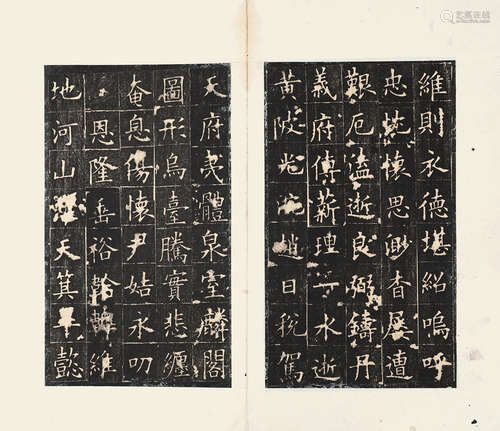 維則永德堪紹嗚呼
忠懷思渺杳屢遭
艱厄溘逝良弼鑄丹
義府傳薪理一水逝
黃陂日稅駕
天府體泉臺麟閣
圖形烏臺騰實悲纏
奄息傷懷尹姞永叨
恩隆岳裕維
地河山天箕懿